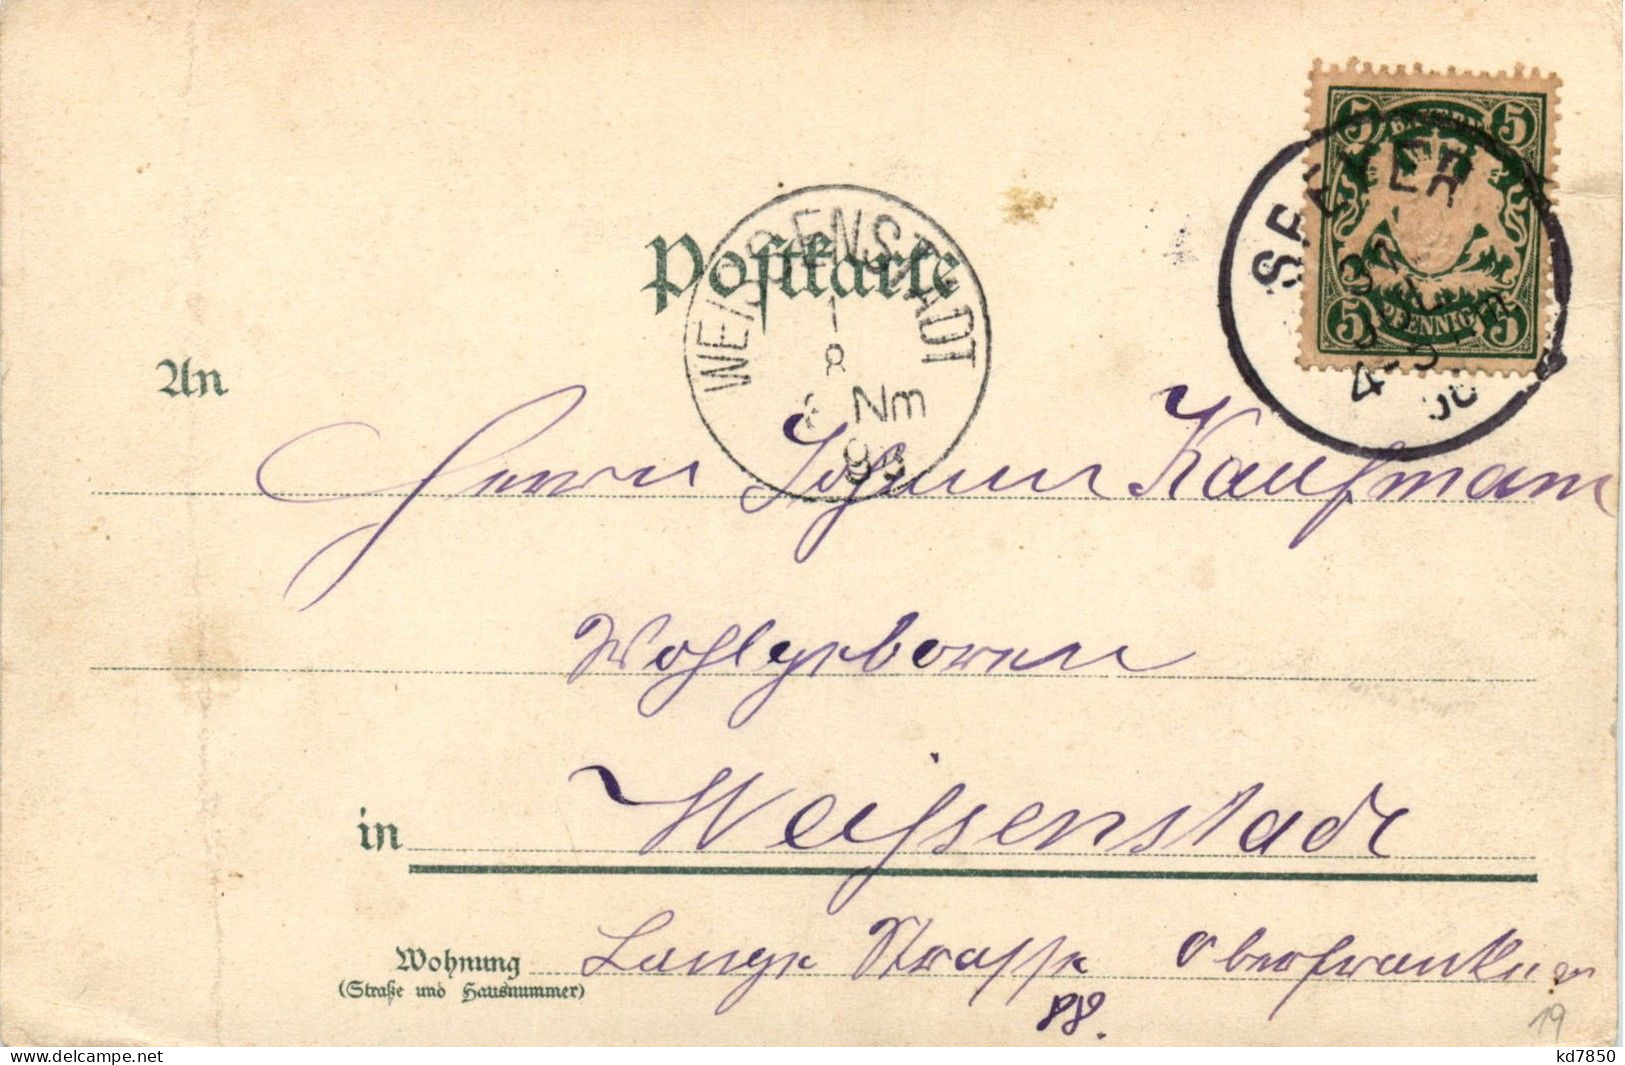 5 BAYERN 5
5 PFENNIG 5
SPEYER
31
JUL
4-5 Nm
98
Postkarte
WEISSENSTADT
1
8
Nm
98
An
Herrn Johann Kaufmann
Wohlgeboren
in Weissenstadt
Wohnung Lange Strasse Oberfranken
(Straße und Hausnummer)
88.
19
delcampe.net
kd7850